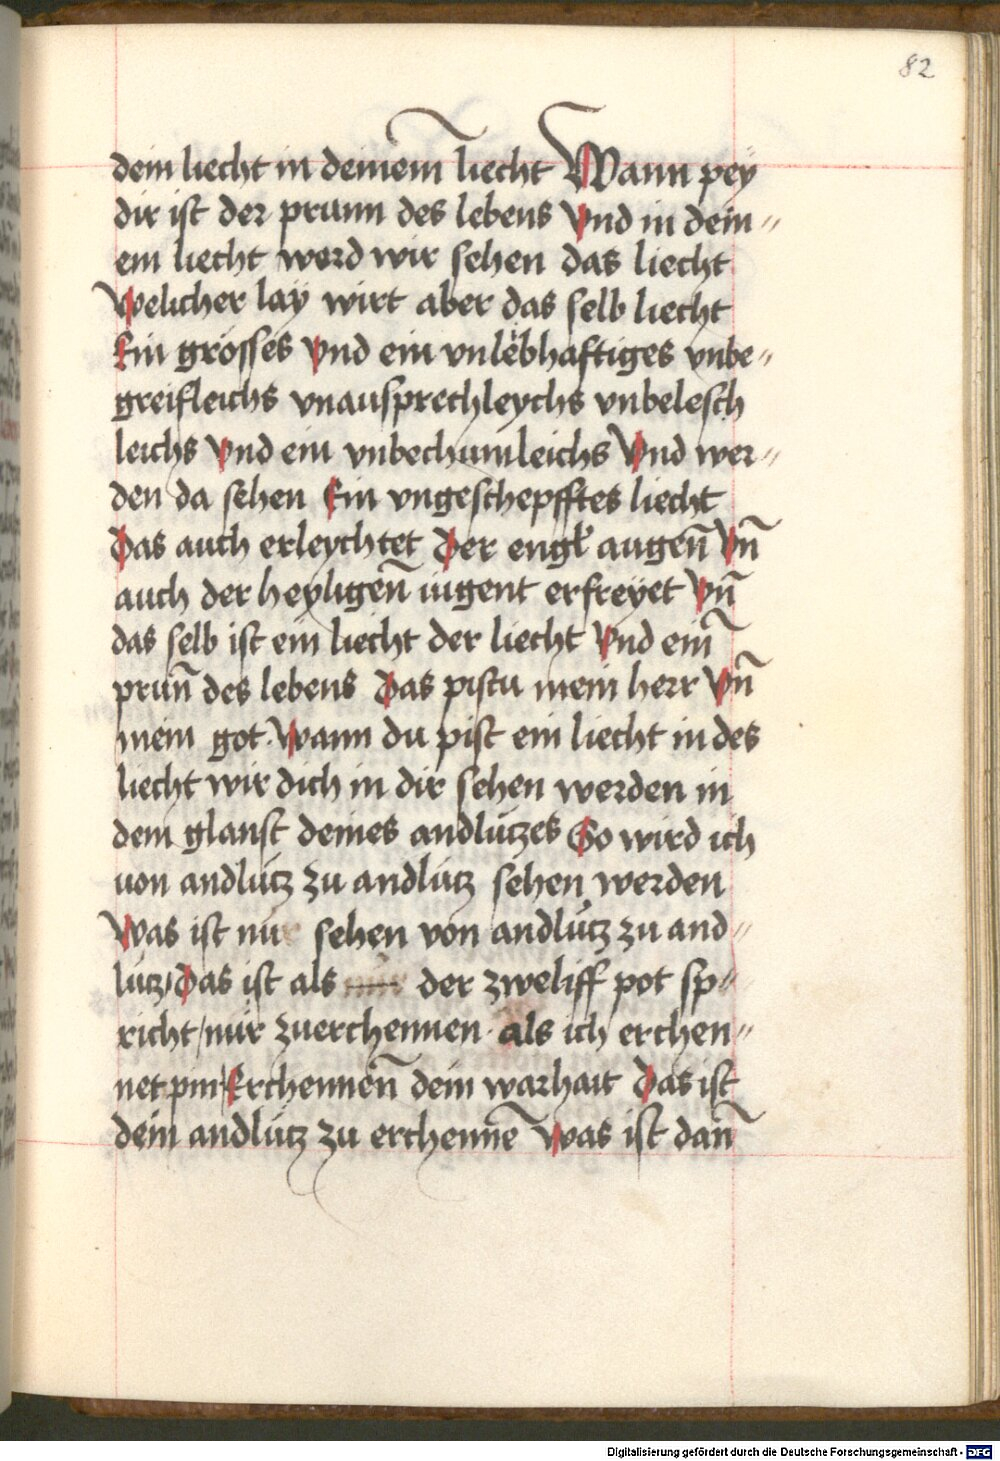 82
dein liecht in deinem̄ liecht Wann pey
dir ist der prunn des lebens Vnd in dein⸗
em liecht werd wir sehen das liecht
Welicher lay wirt aber das selb liecht
Ein grosses Vnd ein vnlebhaftiges vnbe⸗
greifleichs vnausprechleychs vnbelesch
leichs Vnd ein vnbechumleichs Vnd wer⸗
den da sehen Ein vngeschepfftes liecht
Das auch erleychtet Der engl augen̄ Vn̄
auch der heyligen̄ iugent erfreyet Vn̄
das selb ist ein liecht der liecht Vnd ein̄
prun̄ des lebens Das pistu mein herr Vn̄
mein got. Wann du pist ein liecht in des
liecht wir dich in dir sehen werden in
dem glanst deines andlutzes So wird ich
von andlutz zu andlutz sehen werden
Was ist nur sehen von andlutz zu and⸗
lutz/ Das ist als der zweliff pot sp⸗
richt/ nur zuerchennen als ich erchen⸗
net pin/ Erchennen̄ dein warhait Das ist
dein andlutz zu erchenne̅ Was ist dan̄
Digitalisierung gefördert durch die Deutsche Forschungsgemeinschaft - DFG